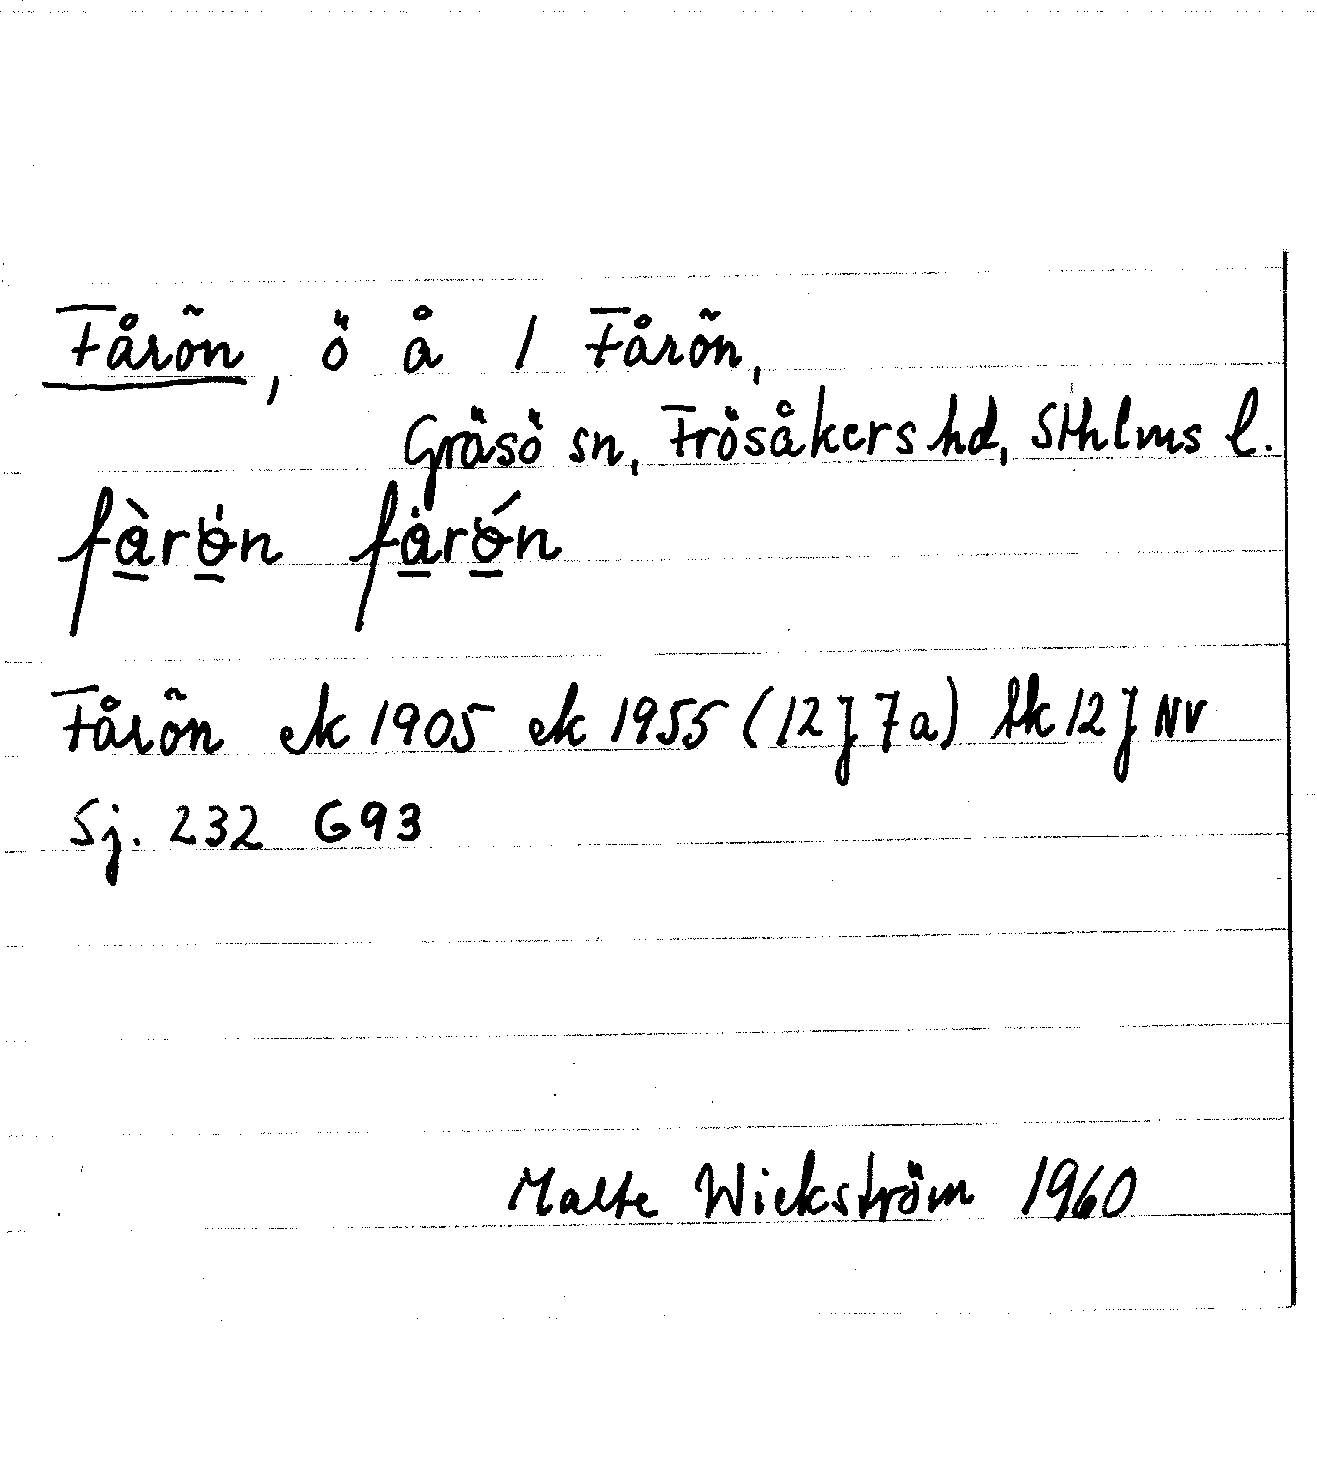 Fårön, ö å 1 Fårön,
Gräsö sn, Frösåkers hd, Sthlms l.
fàrø̀n fårǿn
Fårön ek 1905 ek 1955 (12 J 7a) tk 12 J NV
Sj. 232 G93
Malte Wickström 1960